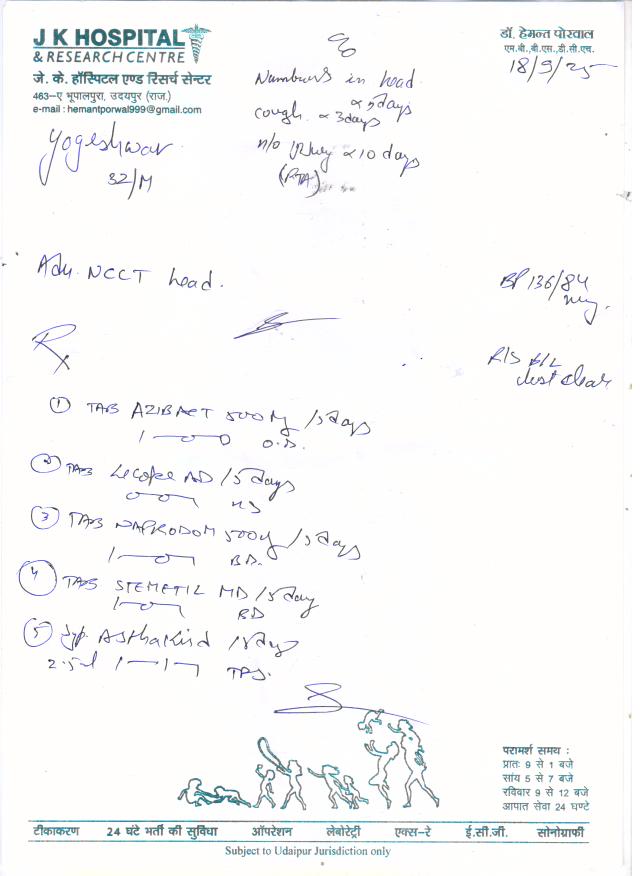 J K HOSPITAL
& RESEARCH CENTRE
जे. के. हॉस्पिटल एण्ड रिसर्च सेन्टर
463–ए भूपालपुरा, उदयपुर (राज.)
e-mail : hemantporwal999@gmail.com
डॉ. हेमन्त पोरवाल
एम.बी.,बी.एस.,डी.सी.एच.
18/9/25
Yogeshwar
32/M
Numbness in head
∝ 5days
cough ∝ 3days
h/o ∝ 10 days
(RTA)
Adv. NCCT head.
BP 136/84
R/S B/L
chest clear
Rx
① TAB AZIBACT 500 Mg / 5 days
1—0—0 O.D.
② TAB Lecope AD / 5 days
HS
③ TAB NAPRODOM 500 / 5 days
1—0—1 BD.
④ TAB STEMETIL MD / 5 day
1—0—1 BD
⑤ Syp. Asthakind / 5 days
2.5 1—1—1 TDS.
परामर्श समय :
प्रातः 9 से 1 बजे
सांय 5 से 7 बजे
रविवार 9 से 12 बजे
आपात सेवा 24 घण्टे
टीकाकरण 24 घंटे भर्ती की सुविधा ऑपरेशन लेबोरेट्री एक्स-रे ई.सी.जी. सोनोग्राफी
Subject to Udaipur Jurisdiction only